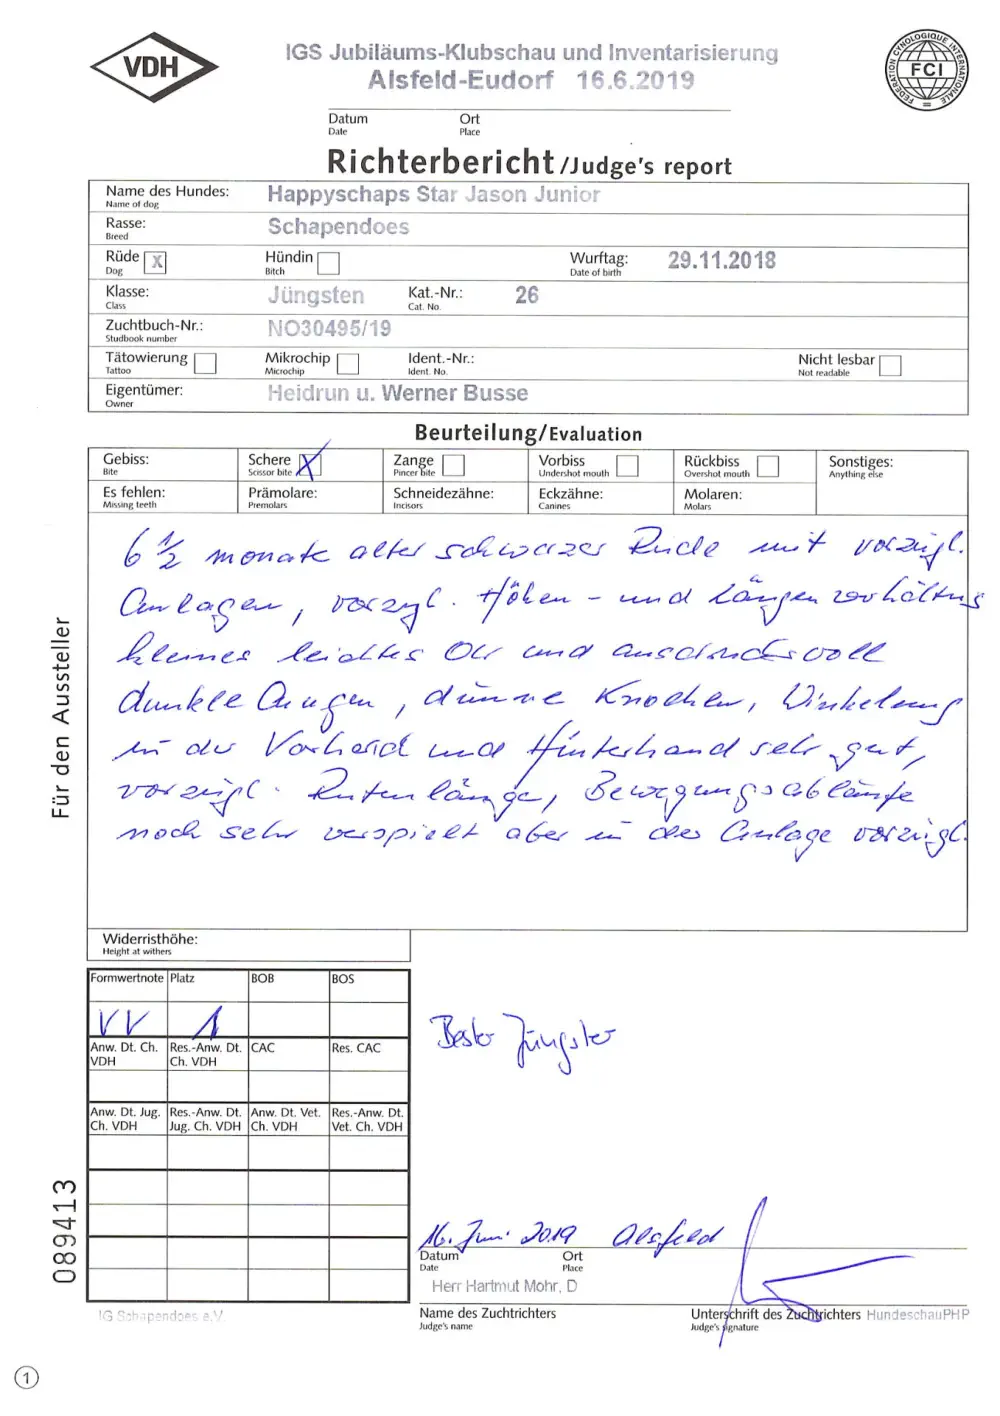 VDH
IGS Jubiläums-Klubschau und Inventarisierung
Alsfeld-Eudorf 16.6.2019
FEDERATION CYNOLOGIQUE INTERNATIONALE
FCI
Datum Ort
Date Place
Richterbericht/Judge's report
Name des Hundes: Happyschaps Star Jason Junior
Name of dog
Rasse: Schapendoes
Breed
Rüde X Hündin Wurftag: 29.11.2018
Dog Bitch Date of birth
Klasse: Jüngsten Kat.-Nr.: 26
Class Cat. No.
Zuchtbuch-Nr.: NO30495/19
Studbook number
Tätowierung Mikrochip Ident.-Nr.: Nicht lesbar
Tattoo Microchip Ident. No. Not readable
Eigentümer: Heidrun u. Werner Busse
Owner
Beurteilung/Evaluation
Gebiss: Schere X Zange Vorbiss Rückbiss Sonstiges:
Bite Scissor bite Pincer bite Undershot mouth Overshot mouth Anything else
Es fehlen: Prämolare: Schneidezähne: Eckzähne: Molaren:
Missing teeth Premolars Incisors Canines Molars
6 1/2 monate alter schwarzer Rüde mit vorzügl.
Anlagen, vorzgl. Höhen- und Längenverhältnis
kleines leichtes Ohr und ausdrucksvoll
dunkle Augen, dünne Knochen, Winkelung
in der Vorhand und Hinterhand sehr gut,
vorzügl. Rutenlänge, Bewegungsabläufe
noch sehr verspielt aber in der Anlage vorzügl.
Für den Aussteller
Widerristhöhe:
Height at withers
Formwertnote Platz BOB BOS
VV 1
Anw. Dt. Ch. Res.-Anw. Dt. CAC Res. CAC
VDH Ch. VDH
Anw. Dt. Jug. Res.-Anw. Dt. Anw. Dt. Vet. Res.-Anw. Dt.
Ch. VDH Jug. Ch. VDH Ch. VDH Vet. Ch. VDH
Bester Jüngster
089413
16. Juni 2019 Alsfeld
Datum Ort
Date Place
Herr Hartmut Mohr, D
IG Schapendoes e.V.
Name des Zuchtrichters Unterschrift des Zuchtrichters HundeschauPHP
Judge's name Judge's signature
1